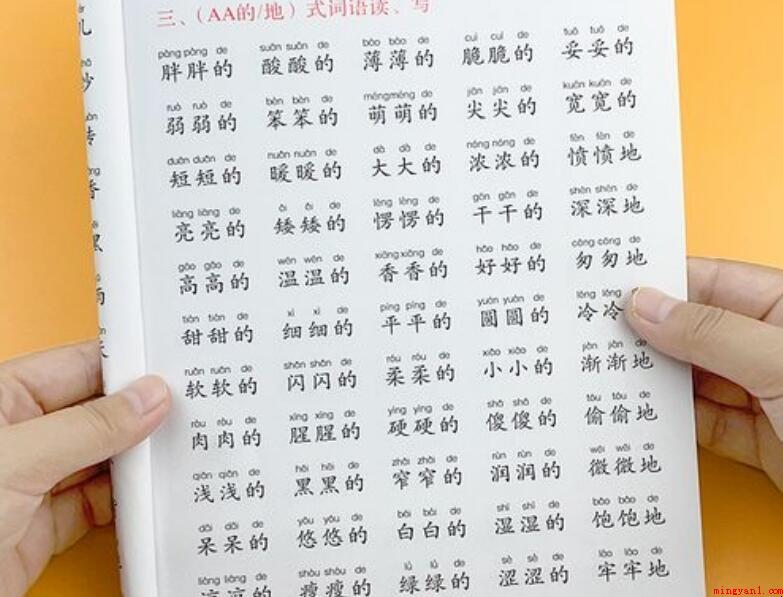 三、（AA的/地）式词语读、写
pàng pàng de suān suān de báo báo de cuì cuì de tuǒ tuǒ de
胖胖的 酸酸的 薄薄的 脆脆的 妥妥的
ruò ruò de bèn bèn de méng méng de jiān jiān de kuān kuān de
弱弱的 笨笨的 萌萌的 尖尖的 宽宽的
duǎn duǎn de nuǎn nuǎn de dà dà de nóng nóng de fèn fèn de
短短的 暖暖的 大大的 浓浓的 愤愤地
liàng liàng de ǎi ǎi de lèng lèng de gān gān de shēn shēn de
亮亮的 矮矮的 愣愣的 干干的 深深地
gāo gāo de wēn wēn de xiāng xiāng de hǎo hǎo de cōng cōng de
高高的 温温的 香香的 好好的 匆匆地
tián tián de xì xì de píng píng de yuán yuán de lěng lěng
甜甜的 细细的 平平的 圆圆的 冷冷
ruǎn ruǎn de shǎn shǎn de róu róu de xiǎo xiǎo de jiàn jiàn de
软软的 闪闪的 柔柔的 小小的 渐渐地
ròu ròu de xīng xīng de yìng yìng de shǎ shǎ de tōu tōu de
肉肉的 腥腥的 硬硬的 傻傻的 偷偷地
qiǎn qiǎn de hēi hēi de zhǎi zhǎi de rùn rùn de wēi wēi de
浅浅的 黑黑的 窄窄的 润润的 微微地
dāi dāi de yōu yōu de bái bái de shī shī de bǎo bǎo de
呆呆的 悠悠的 白白的 湿湿的 饱饱地
liáng liáng de shòu shòu de lǜ lǜ de sè sè de láo láo de
凉凉的 瘦瘦的 绿绿的 涩涩的 牢牢地
香
黑
mingyan1.com